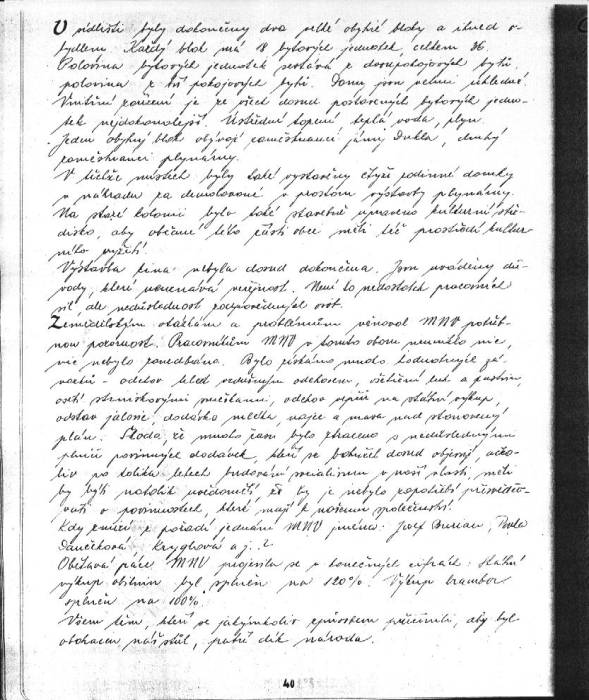 V sídlišti byly dokončeny dva velké obytné bloky a ihned o-
bydleny. Každý blok má 18 bytových jednotek, celkem 36.
Polovina bytových jednotek sestává z dvoupokojových bytů
polovina z tří pokojových bytů. Domy jsou velmi úhledné.
Vnitřní zařízení je ze všech dosud postavených bytových jedno-
tek nejdokonalejší. Ústřední topení teplá voda, plyn.
Jeden obytný blok obývají zaměstnanci jámy Dukla, druhý
zaměstnanci plynárny.
V těchže místech byly také vystavěny čtyři rodinné domky
v náhradu za demolované v prostoru výstavby plynárny.
Na staré kolonii bylo také stavebně upraveno kulturní stře-
disko, aby občané této části obce měli též prostředí kultur-
ního vyžití.
Výstavba kina nebyla dosud dokončena. Jsou uváděny dů-
vody, které neuznává veřejnost. Není to nedostatek pracovních
sil, ale nedůslednost zodpovědných osob.
Zemědělským otázkám a problémům věnoval MNV potřeb-
nou pozornost. Pracovníkům MNV v tomto oboru neuniklo nic,
nic nebylo zanedbáno. Bylo získáno mnoho hodnotných zá-
vazků - odchov telat vzdušným odchovem, ošetření luk a pastvin,
osetí strniskovými směskami, odchov vepřů na státní výkup,
odstav jalovic, dodávka mléka, vajec a masa nad stanovený
plán. Škoda, že mnoho času bylo ztraceno s nedůsledným
plnění povinných dodávek, kteří se bohužel dosud objevují, ačko-
liv po tolika letech budování socialismu v naší vlasti, měli
by býti natolik uvědomělí, že by je nebylo zapotřebí přesvědčo-
vati o povinnostech, které mají k našemu společenství.
Kdy zmizí z pořadí jednání MNV jména: Josef Burian,
Daněčková Kryglová a j..?
Obětavá práce MNV projevila se v konečných cifrách: státní
výkup obilnin byl splněn na 120%. Výkup brambor
splněn na 100%.
Všem těm, kteří se jakýmkoliv způsobem přičinili, aby byl
obohacen náš stůl, patří dík národa.
40